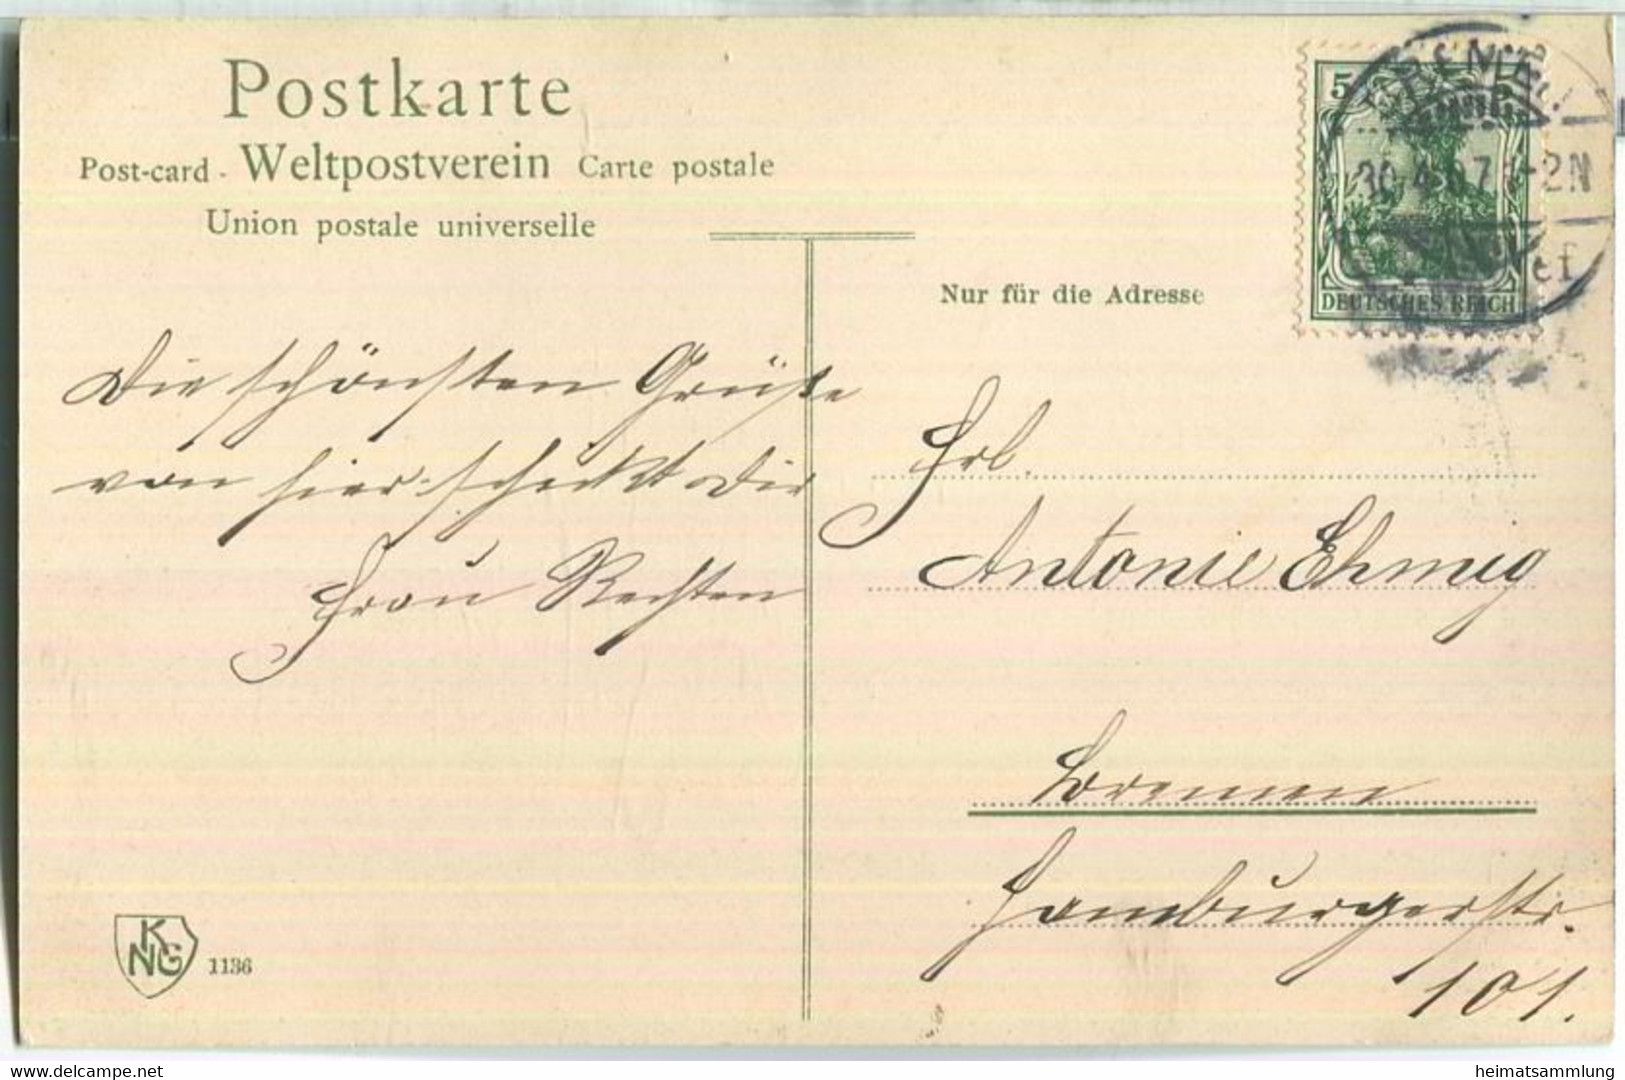 Postkarte
Post-card - Weltpostverein Carte postale
Union postale universelle
Nur für die Adresse
5
DEUTSCHES REICH
BREMEN
30.4.07 1-2N
Die schönsten Grüße
von hier schickt Dir
Frau Rechten
Frl.
Antonie Ehmig
Bremen
Hamburgerstr.
101.
KNG
1136
www.delcampe.net
heimatsammlung